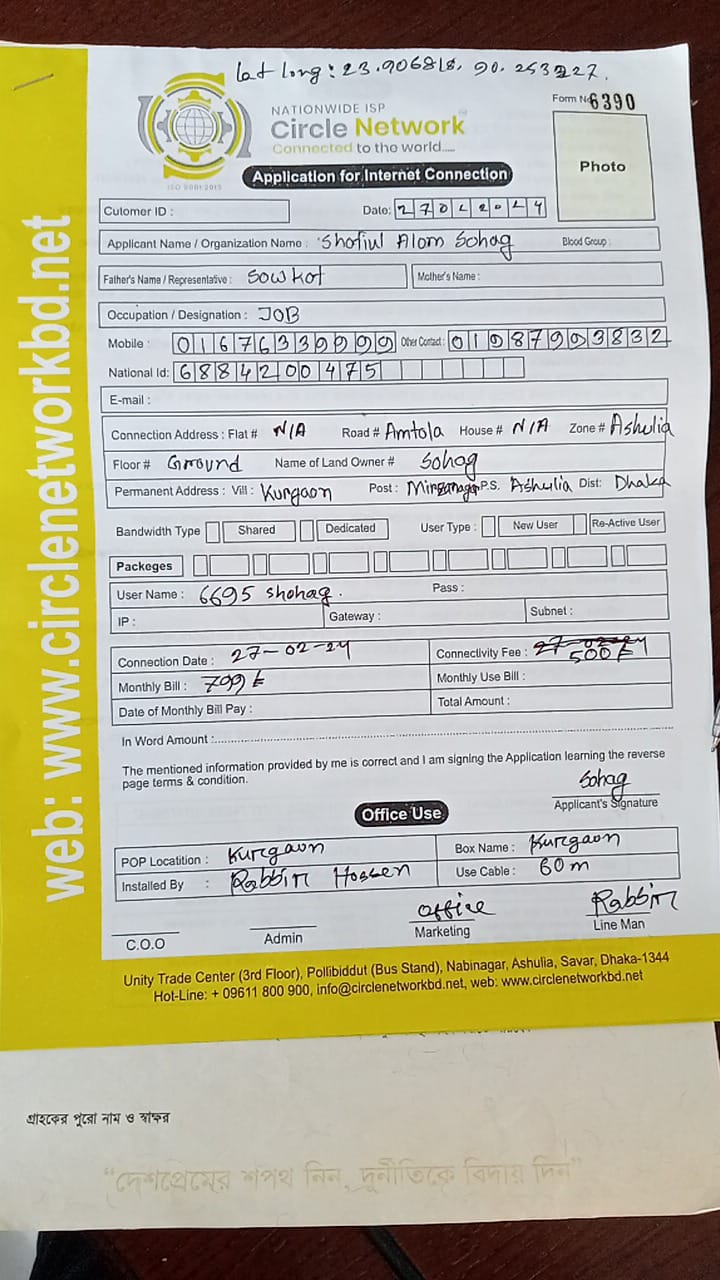 Lat Long: 23.906818, 90.253227.
NATIONWIDE ISP
Circle Network
Connected to the world.....
ISO 9001:2015
Form No 6390
Photo
Application for Internet Connection
Cutomer ID :
Date: 27022024
Applicant Name / Organization Name : Shofiul Alom Sohag Blood Group :
Father's Name / Representative : Sowkot Mother's Name :
Occupation / Designation : JOB
Mobile : 01676339999 Other Contact : 01987993832
National Id: 6884200475
E-mail :
Connection Address : Flat # N/A Road # Amtola House # N/A Zone # Ashulia
Floor # Ground Name of Land Owner # Sohag
Permanent Address : Vill : Kurgaon Post : Mirzanagar P.S. Ashulia Dist: Dhaka
Bandwidth Type Shared Dedicated User Type : New User Re-Active User
Packeges
User Name : 6695 shohag. Pass :
IP : Gateway : Subnet :
Connection Date : 27-02-24 Connectivity Fee : 500 ৳
Monthly Bill : 799 ৳ Monthly Use Bill :
Date of Monthly Bill Pay : Total Amount :
In Word Amount :
The mentioned information provided by me is correct and I am signing the Application learning the reverse
page terms & condition.
Sohag
Applicant's Signature
Office Use
POP Locatition : Kurgaon Box Name : Kurgaon
Installed By : Rabbin Hossen Use Cable : 60 m
Office Rabbin
C.O.O Admin Marketing Line Man
Unity Trade Center (3rd Floor), Pollibiddut (Bus Stand), Nabinagar, Ashulia, Savar, Dhaka-1344
Hot-Line: + 09611 800 900, info@circlenetworkbd.net, web: www.circlenetworkbd.net
web: www.circlenetworkbd.net
গ্রাহকের পুরো নাম ও স্বাক্ষর
“দেশপ্রেমের শপথ নিন, দুর্নীতিকে বিদায় দিন”